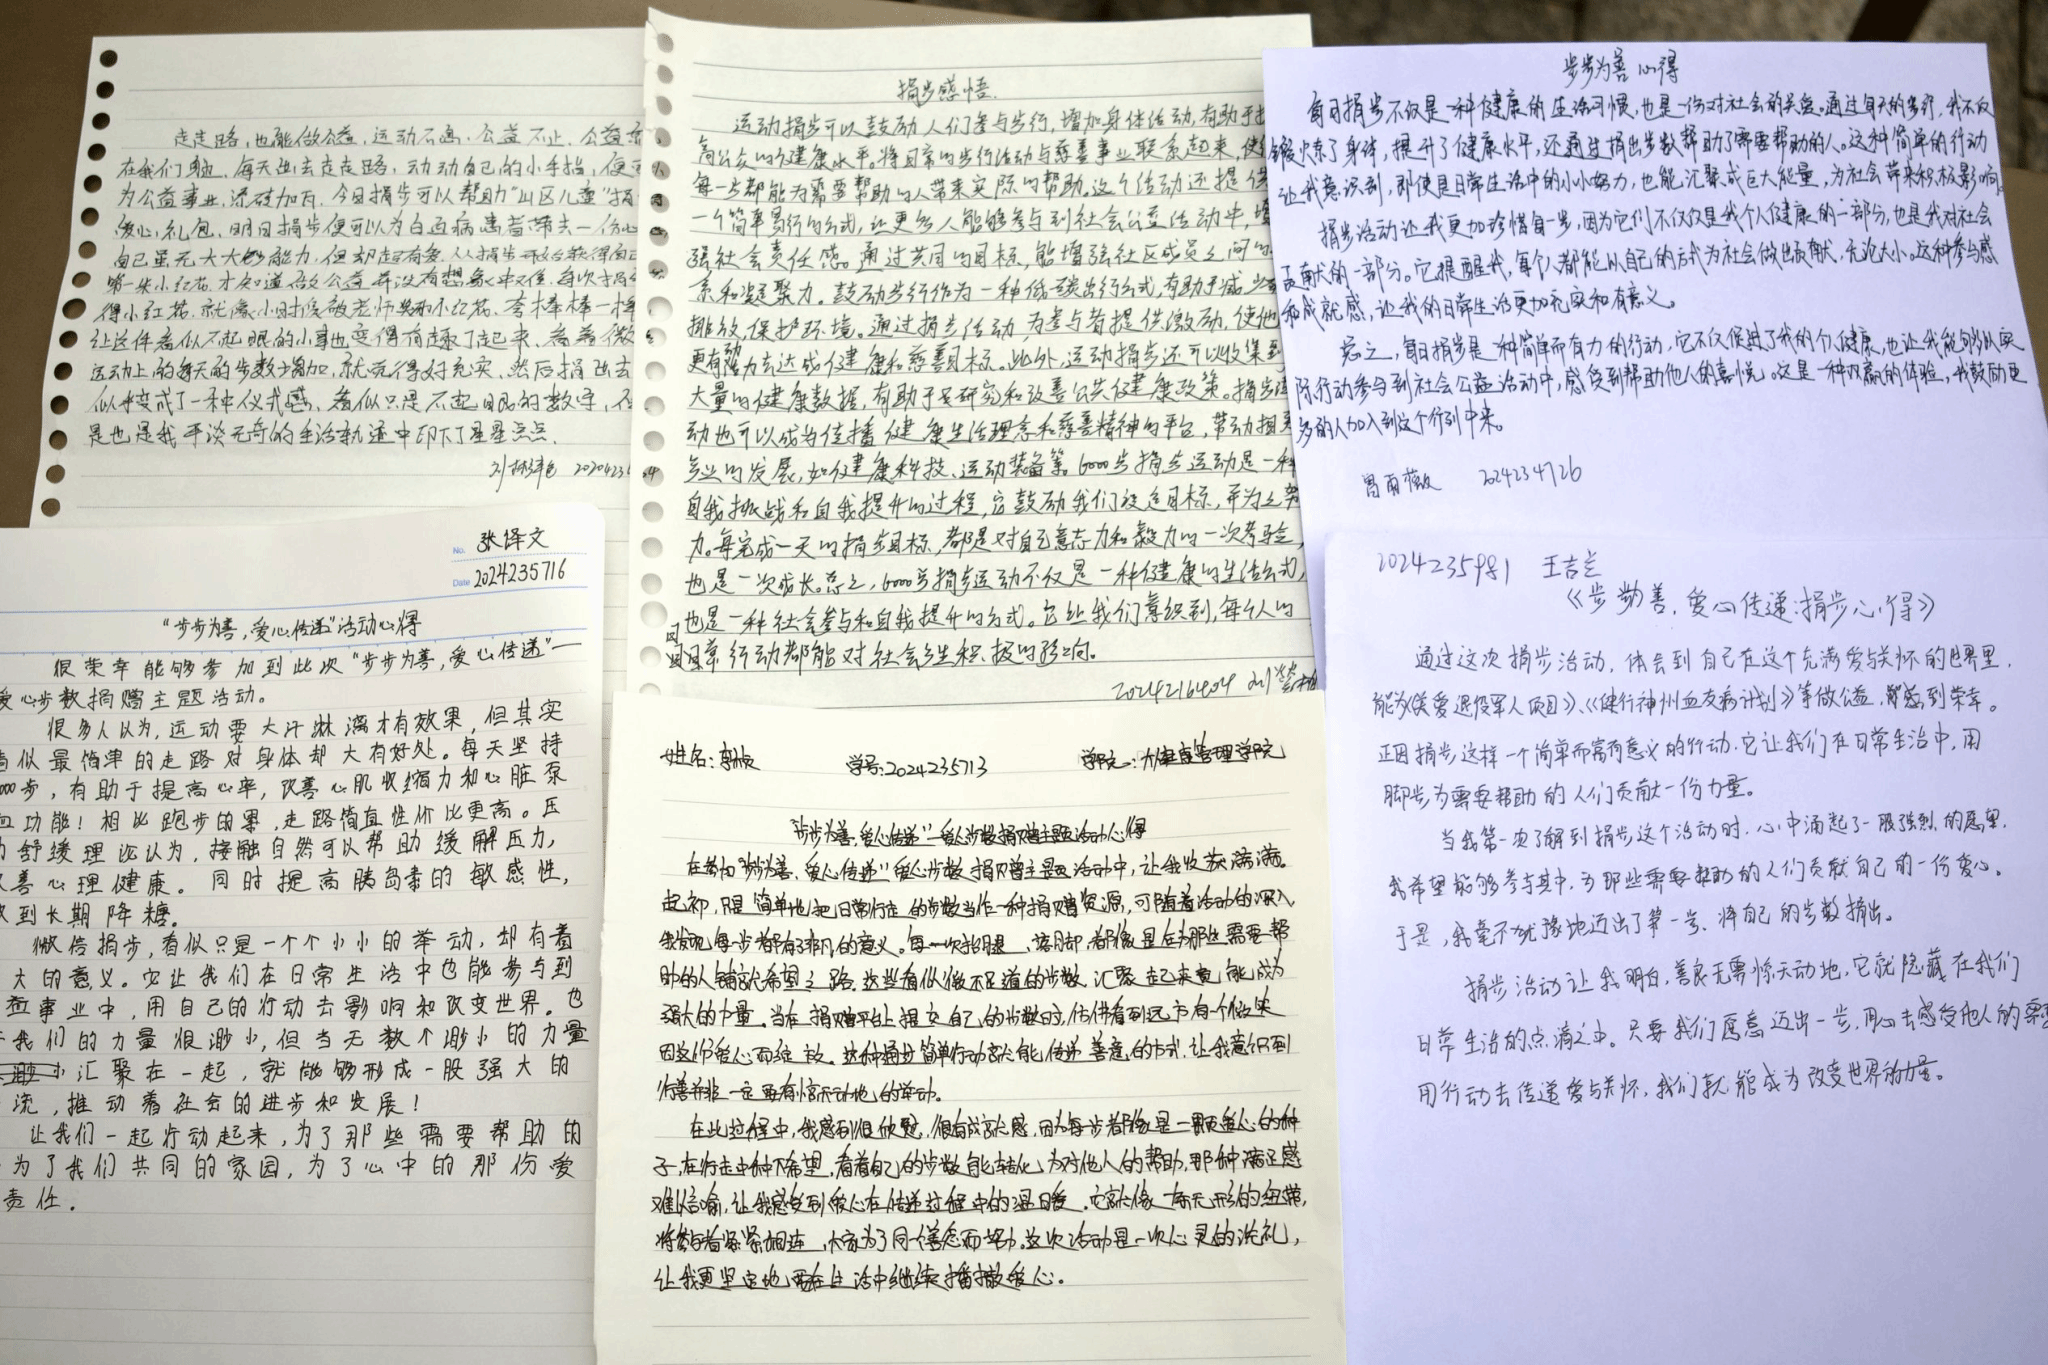 走走路，也能做公益，运动不离，公益不止，公益
在我们身边，每天出去走走路，动动自己的小手指，便可
为公益事业，添砖加瓦，今日捐步可以帮助“山区儿童”捐
爱心礼包，明日捐步便可以为白血病患者带去一份心
自己虽无大大能力，但却起有爱，从捐步开始获得自己
第一朵小红花，才知道做公益并没有想象中难，每次捐
得小红花，就像小时候被老师奖和小红花，夸棒棒一样
让这件看似不起眼的小事也变得有趣了起来，看着微
运动上的每天的步数增加，就觉得好充实，然后捐出去
似乎变成了一种仪式感，看似只是不起眼的数字，
是也是我平淡无奇的生活轨迹中印下了星星点点。
捐步感悟.
运动捐步可以鼓励人们参与步行，增加身体活动，有助于提
高公众的健康水平。将日常的步行活动与慈善事业联系起来，使
每一步都能为需要帮助的人带来实际的帮助。这个活动还提供
一个简单易行的方式，让更多人能够参与到社会公益活动中，增
强社会责任感。通过共同的目标，能增强社区成员之间的
系和凝聚力。鼓励步行作为一种低碳出行方式，有助于减少
排放，保护环境。通过捐步活动，为参与者提供激励，使他
更有动力去达成健康和慈善目标。此外，运动捐步还可以收集到
大量的健康数据，有助于研究和改善公共健康政策。捐步
动也可以成为传播健康生活理念和慈善精神的平台，带动相关
产业的发展，如健康科技、运动装备等。6000步捐步运动是一种
自我挑战和自我提升的过程，它鼓励我们设定目标，并为之努
力。每完成一天的捐步目标，都是对自己意志力和毅力的一次考验，
也是一次成长。总之，6000步捐步运动不仅是一种健康的生活方式，
也是一种社会参与和自我提升的方式。它让我们意识到，每个人的
日常行动都能对社会产生积极的影响。
2024216404 刘
步步为善心得
每日捐步不仅是一种健康的生活习惯，也是一份对社会的关爱。通过每天的步行，我不仅
锻炼了身体，提升了健康水平，还通过捐出步数帮助了需要帮助的人。这种简单的行动
让我意识到，即使是日常生活中的小小努力，也能汇聚成巨大能量，为社会带来积极影响。
捐步活动让我更加珍惜每一步，因为它们不仅仅是我个人健康的一部分，也是我对社会
贡献的一部分。它提醒我，每个人都能以自己的方式为社会做出贡献，无论大小。这种参与感
和成就感，让我的日常生活更加充实和有意义。
总之，每日捐步是一种简单而有力的行动，它不仅促进了我的个人健康，也让我能够以实
际行动参与到社会公益活动中，感受到帮助他人的喜悦。这是一种双赢的体验，我鼓励更
多的人加入到这个行列中来。
雨薇 2024234726
No. 张译文
Date 2024235716
“步步为善，爱心传递”活动心得
很荣幸能够参加到此次“步步为善，爱心传递”—
爱心步数捐赠主题活动。
很多人以为，运动要大汗淋漓才有效果，但其实
看似最简单的走路对身体却大有好处。每天坚持
000步，有助于提高心率，改善心肌收缩力和心脏泵
血功能！相比跑步的累，走路简直性价比更高。压
力舒缓理论认为，接触自然可以帮助缓解压力，
改善心理健康。同时提高胰岛素的敏感性，
达到长期降糖。
微信捐步，看似只是一个个小小的举动，却有着
大的意义。它让我们在日常生活中也能参与到
益事业中，用自己的行动去影响和改变世界。也
我们的力量很渺小，但当无数个渺小的力量
汇聚在一起，就能够形成一股强大的
流，推动着社会的进步和发展！
让我们一起行动起来，为了那些需要帮助的
为了我们共同的家园，为了心中的那份爱
责任。
姓名： 学号：2024235713 学院：大健康管理学院
“步步为善，爱心传递”—爱心步数捐赠主题活动心得
在参加“步步为善、爱心传递”爱心步数捐赠主题活动中，让我收获满满。
起初，只是简单地把日常行走的步数当作一种捐赠资源，可随着活动的深入
我发现每一步都有了非凡的意义。每一次抬腿，落脚，都像是在为那些需要帮
助的人铺就希望之路，这些看似微不足道的步数，汇聚起来竟能成为
强大的力量。当在捐赠平台上提交自己的步数时，仿佛看到远方有一个微笑
因这份爱心而绽放。这种通过简单行动就能传递善意的方式，让我意识到
行善并非一定要有惊天动地的举动。
在此过程中，我感到很欣慰，很有成就感，因为每步都像是一颗爱心的种
子，在行走中种下希望，看着自己的步数能转化为对他人的帮助，那种满足感
难以言喻，让我感受到爱心在传递过程中的温暖，它就像一条无形的纽带，
将参与者紧紧相连，大家为了同一个善念而努力。这次活动是一次心灵的洗礼，
让我更坚定地要在生活中继续播撒爱心。
2024235981 王吉兰
《步步为善，爱心传递：捐步心得》
通过这次捐步活动，体会到自己在这个充满爱与关怀的世界里，
能为《关爱退役军人项目》、《健行神州血友病计划》等做公益，感到荣幸。
正因捐步这样一个简单而富有意义的行动，它让我们在日常生活中，用
脚步为需要帮助的人们贡献一份力量。
当我第一次了解到捐步这个活动时，心中涌起了一股强烈的愿望，
我希望能够参与其中，为那些需要帮助的人们贡献自己的一份爱心。
于是，我毫不犹豫地迈出了第一步，将自己的步数捐出。
捐步活动让我明白，善良无需惊天动地，它就隐藏在我们
日常生活的点滴之中。只要我们愿意迈出一步，用心去感受他人的需要
用行动去传递爱与关怀，我们就能成为改变世界的力量。